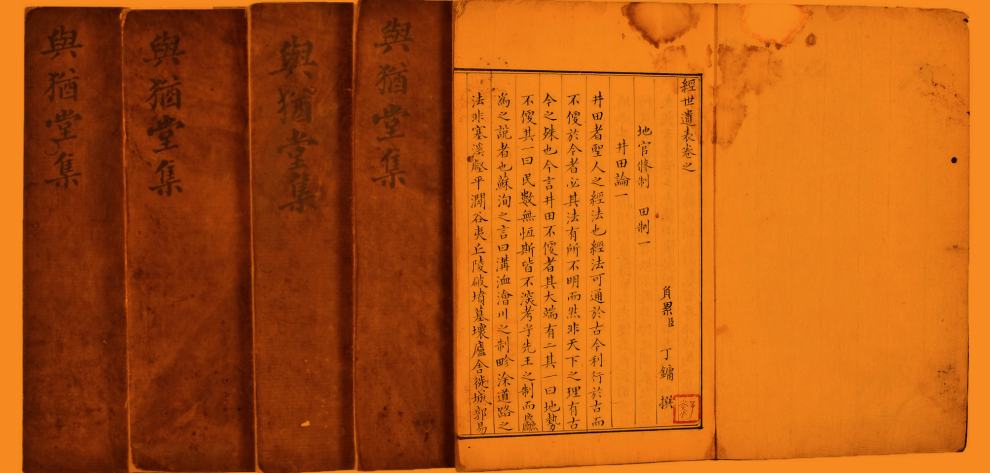 與猶堂集
與猶堂集
與猶堂集
與猶堂集
經世遺表卷之
地官修制 田制一
負累臣 丁鏞 撰
井田論一
井田者聖人之經法也經法可通於古今利行於古而
不便於今者必其法有所不明而然非天下之理有古
今之殊也今言井田不便者其大端有二其一曰地勢
不便其一曰民數無恆斯皆不深考乎先王之制而
為之說者也蘇洵之言曰溝洫澮川之制畛涂道路之
法非塞溪壑平澗谷夷丘陵破墳墓壞廬舍徙城郭易